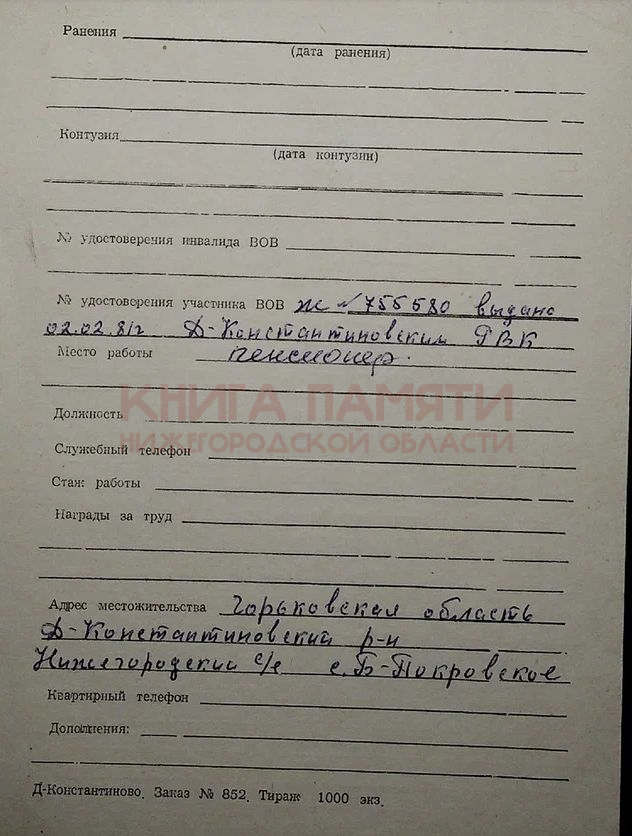 Ранения
(дата ранения)
Контузия
(дата контузии)
№ удостоверения инвалида ВОВ
№ удостоверения участника ВОВ Ж № 755580 выдано
02.02.81г Д-Константиновским РВК
Место работы пенсионер.
КНИГА ПАМЯТИ
Должность
НИЖЕГОРОДСКОЙ ОБЛАСТИ
Служебный телефон
Стаж работы
Награды за труд
Адрес местожительства Горьковская область
Д-Константиновский р-н
Нижегородский с/с с. Б-Покровское
Квартирный телефон
Дополнения:
Д-Константиново. Заказ № 852. Тираж 1000 экз.